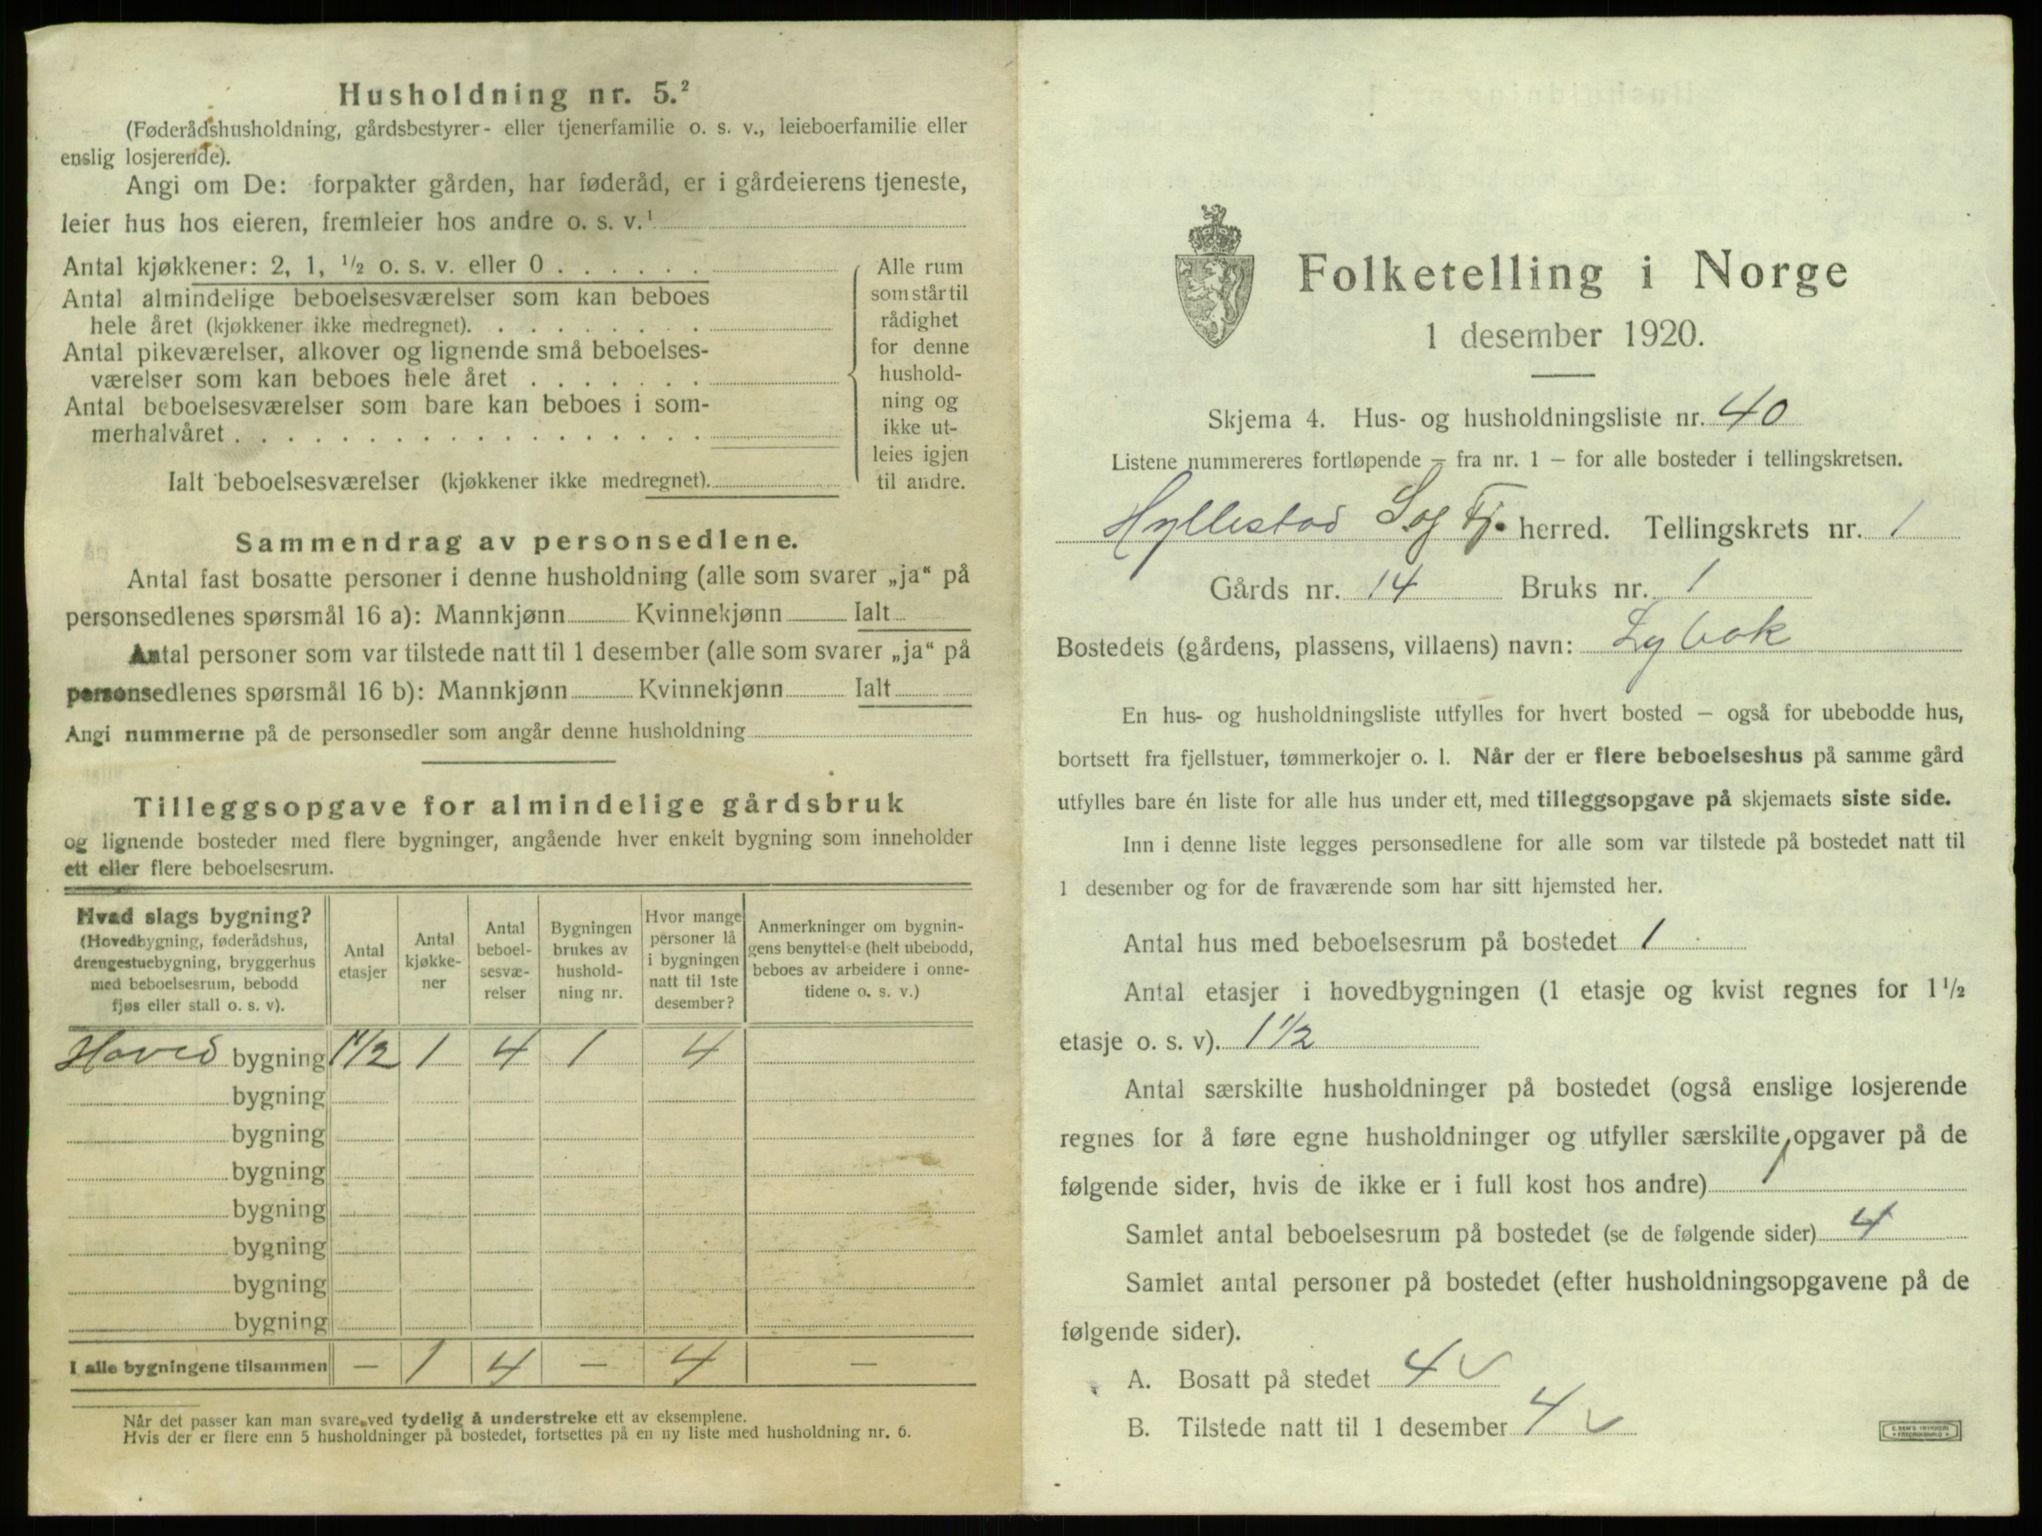 Husholdning nr. 5.²
(Føderådshusholdning, gårdsbestyrer- eller tjenerfamilie o. s. v., leieboerfamilie eller
enslig losjerende).
Angi om De: forpakter gården, har føderåd, er i gårdeierens tjeneste,
leier hus hos eieren, fremleier hos andre o. s. v.¹
Antal kjøkkener: 2, 1, ½ o. s. v. eller 0 . . . . . .
Antal almindelige beboelsesværelser som kan beboes
hele året (kjøkkener ikke medregnet). . . . . . . . .
Antal pikeværelser, alkover og lignende små beboelses-
værelser som kan beboes hele året . . . . . . .
Antal beboelsesværelser som bare kan beboes i som-
merhalvåret . . . . . . . . . . . . . . . . . .
Ialt beboelsesværelser (kjøkkener ikke medregnet).
Alle rum
som står til
rådighet
for denne
hushold-
ning og
ikke ut-
leies igjen
til andre.
Sammendrag av personsedlene.
Antal fast bosatte personer i denne husholdning (alle som svarer „ja“ på
personsedlenes spørsmål 16 a): Mannkjønn Kvinnekjønn Ialt
Antal personer som var tilstede natt til 1 desember (alle som svarer „ja“ på
personsedlenes spørsmål 16 b): Mannkjønn Kvinnekjønn Ialt
Angi nummerne på de personsedler som angår denne husholdning
Tilleggsopgave for almindelige gårdsbruk
og lignende bosteder med flere bygninger, angående hver enkelt bygning som inneholder
ett eller flere beboelsesrum.
Hvad slags bygning?
(Hovedbygning, føderådshus,
drengestuebygning, bryggerhus
med beboelsesrum, bebodd
fjøs eller stall o. s. v).
Antal
etasjer
Antal
kjøkke-
ner
Antal
beboel-
sesvæ-
relser
Bygningen
brukes av
hushold-
ning nr.
Hvor mange
personer lå
i bygningen
natt til 1ste
desember?
Anmerkninger om bygnin-
gens benyttelse (helt ubebodd,
beboes av arbeidere i onne-
tidene o. s. v.)
Hoved bygning 1½ 1 4 1 4
bygning
bygning
bygning
bygning
bygning
bygning
bygning
I alle bygningene tilsammen — 1 4 — 4 —
Når det passer kan man svare ved tydelig å understreke ett av eksemplene.
Hvis der er flere enn 5 husholdninger på bostedet, fortsettes på en ny liste med husholdning nr. 6.
Folketelling i Norge
1 desember 1920.
Skjema 4. Hus- og husholdningsliste nr. 40
Listene nummereres fortløpende – fra nr. 1 – for alle bosteder i tellingskretsen.
Hyllestad Sog Fj. herred. Tellingskrets nr. 1
Gårds nr. 14 Bruks nr. 1
Bostedets (gårdens, plassens, villaens) navn: Lybak
En hus- og husholdningsliste utfylles for hvert bosted – også for ubebodde hus,
bortsett fra fjellstuer, tømmerkojer o. l. Når der er flere beboelseshus på samme gård
utfylles bare én liste for alle hus under ett, med tilleggsopgave på skjemaets siste side.
Inn i denne liste legges personsedlene for alle som var tilstede på bostedet natt til
1 desember og for de fraværende som har sitt hjemsted her.
Antal hus med beboelsesrum på bostedet 1
Antal etasjer i hovedbygningen (1 etasje og kvist regnes for 1½
etasje o. s. v). 1½
Antal særskilte husholdninger på bostedet (også enslige losjerende
regnes for å føre egne husholdninger og utfyller særskilte opgaver på de
følgende sider, hvis de ikke er i full kost hos andre) 1
Samlet antal beboelsesrum på bostedet (se de følgende sider) 4
Samlet antal personer på bostedet (efter husholdningsopgavene på de
følgende sider).
A. Bosatt på stedet 4 ✓
B. Tilstede natt til 1 desember 4 ✓